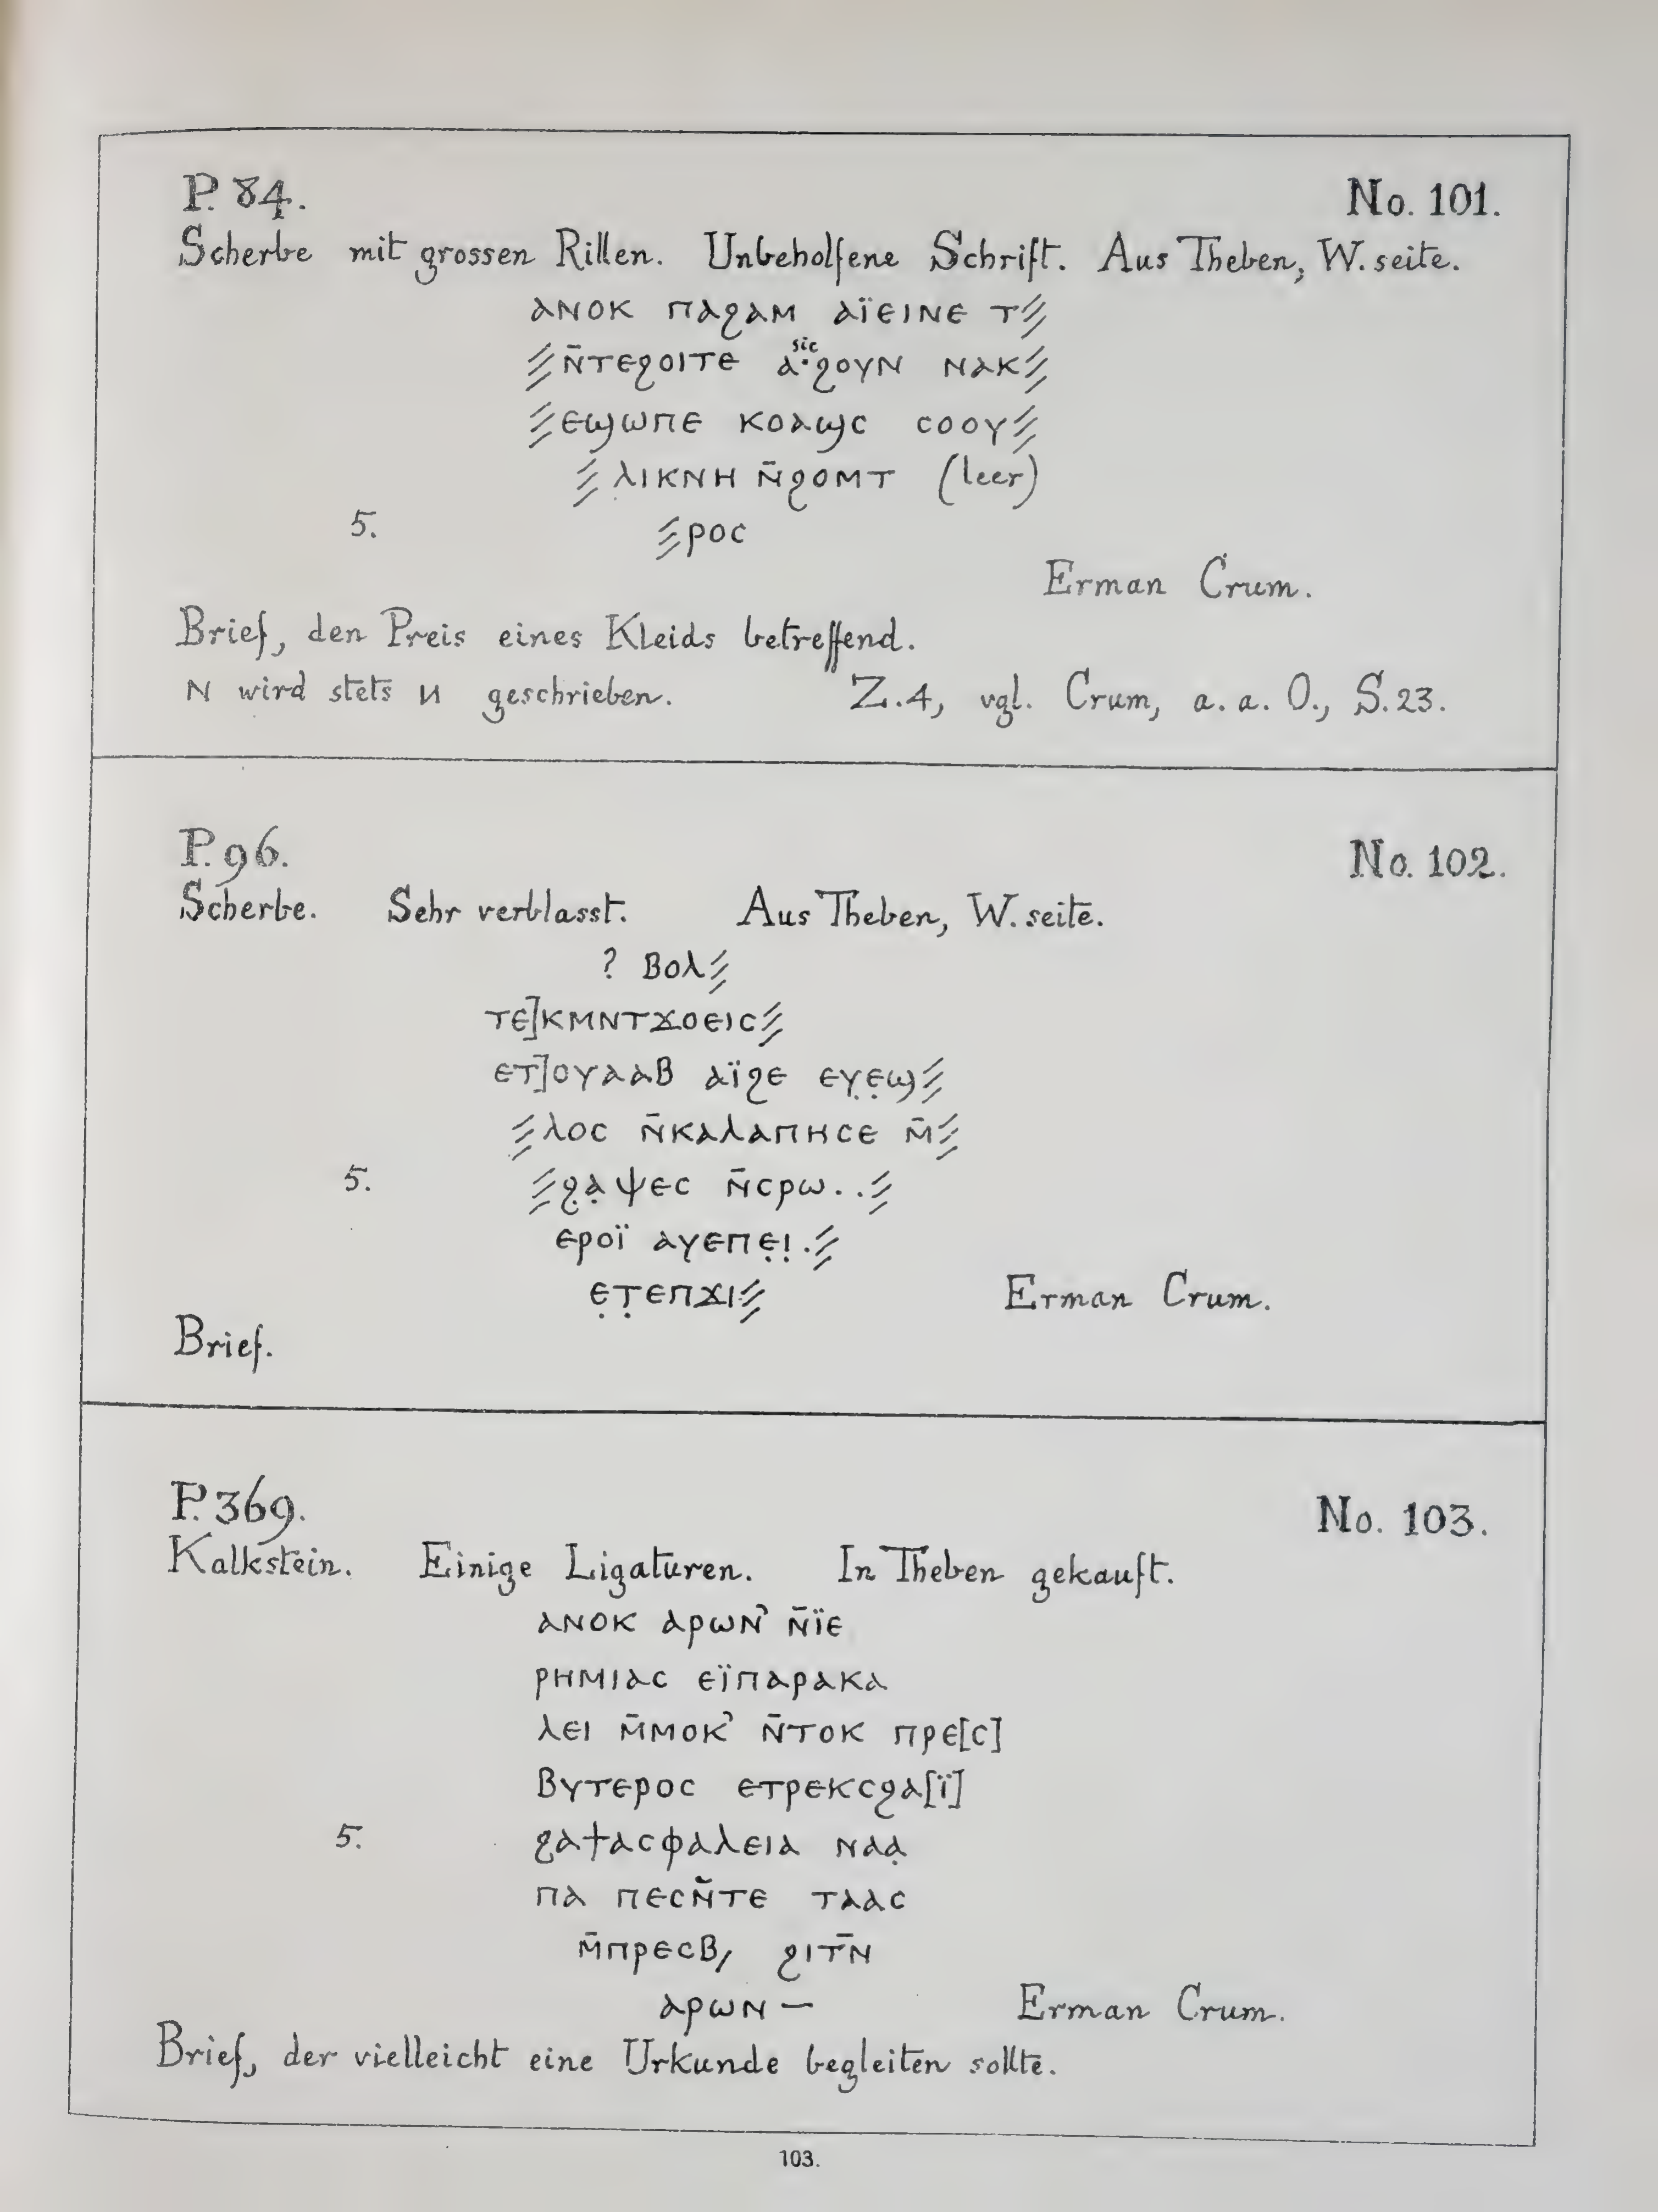 P. 84. No. 101.
Scherbe mit grossen Rillen. Unbeholfene Schrift. Aus Theben, W. seite.
ⲁⲛⲟⲕ ⲡⲁϩⲁⲙ ⲁⲓ̈ⲉⲓⲛⲉ ⲧ⫽
⫽ⲛ̄ⲧⲉϩⲟⲓⲧⲉ ⲁ·ϩⲟⲩⲛ ⲛⲁⲕ⫽
sic
⫽ⲉϣⲱⲡⲉ ⲕⲟⲁϣⲥ ⲥⲟⲟⲩ⫽
⫽ⲗⲓⲕⲛⲏ ⲛ̄ϩⲟⲙⲧ (leer)
5. ⫽ⲣⲟⲥ
Erman Crum.
Brief, den Preis eines Kleids betreffend.
ⲛ wird stets ᴎ geschrieben. Z. 4, vgl. Crum, a. a. O., S. 23.
P. 96. No. 102.
Scherbe. Sehr verblasst. Aus Theben, W. seite.
? ⲃⲟⲗ⫽
ⲧⲉ]ⲕⲙⲛⲧϫⲟⲉⲓⲥ⫽
ⲉⲧ]ⲟⲩⲁⲁⲃ ⲁⲓ̈ϩⲉ ⲉⲩ̣ⲉ̣ϣ⫽
⫽ⲗⲟⲥ ⲛ̄ⲕⲁⲗⲁⲡⲏⲥⲉ ⲙ̄⫽
5. ⫽ϩ̣ⲁ̣ⲯⲉⲥ ⲛ̄ⲥⲣⲱ..⫽
ⲉⲣⲟⲓ̈ ⲁⲩⲉⲡⲉ̣ⲓ̣.⫽
ⲉ̣ⲧ̣ⲉⲡϫⲓ⫽ Erman Crum.
Brief.
P. 369. No. 103.
Kalkstein. Einige Ligaturen. In Theben gekauft.
ⲁⲛⲟⲕ ⲁⲣⲱⲛ’ ⲛ̄ⲓ̈ⲉ
ⲣⲏⲙⲓⲁⲥ ⲉⲓ̈ⲡⲁⲣⲁⲕⲁ
ⲗⲉⲓ ⲙ̄ⲙⲟⲕ’ ⲛ̄ⲧⲟⲕ ⲡⲣⲉ[ⲥ]
ⲃⲩⲧⲉⲣⲟⲥ ⲉⲧⲣⲉⲕⲥϩⲁ[ⲓ̈]
5. ϩⲁϯⲁⲥⲫⲁⲗⲉⲓⲁ ⲛⲁⲁ̣
ⲡⲁ ⲡⲉⲥⲛ̄ⲧⲉ ⲧⲁⲁⲥ
ⲙ̄ⲡⲣⲉⲥⲃ/ ϩⲓⲧⲛ̄
ⲁⲣⲱⲛ — Erman Crum.
Brief, der vielleicht eine Urkunde begleiten sollte.
103.